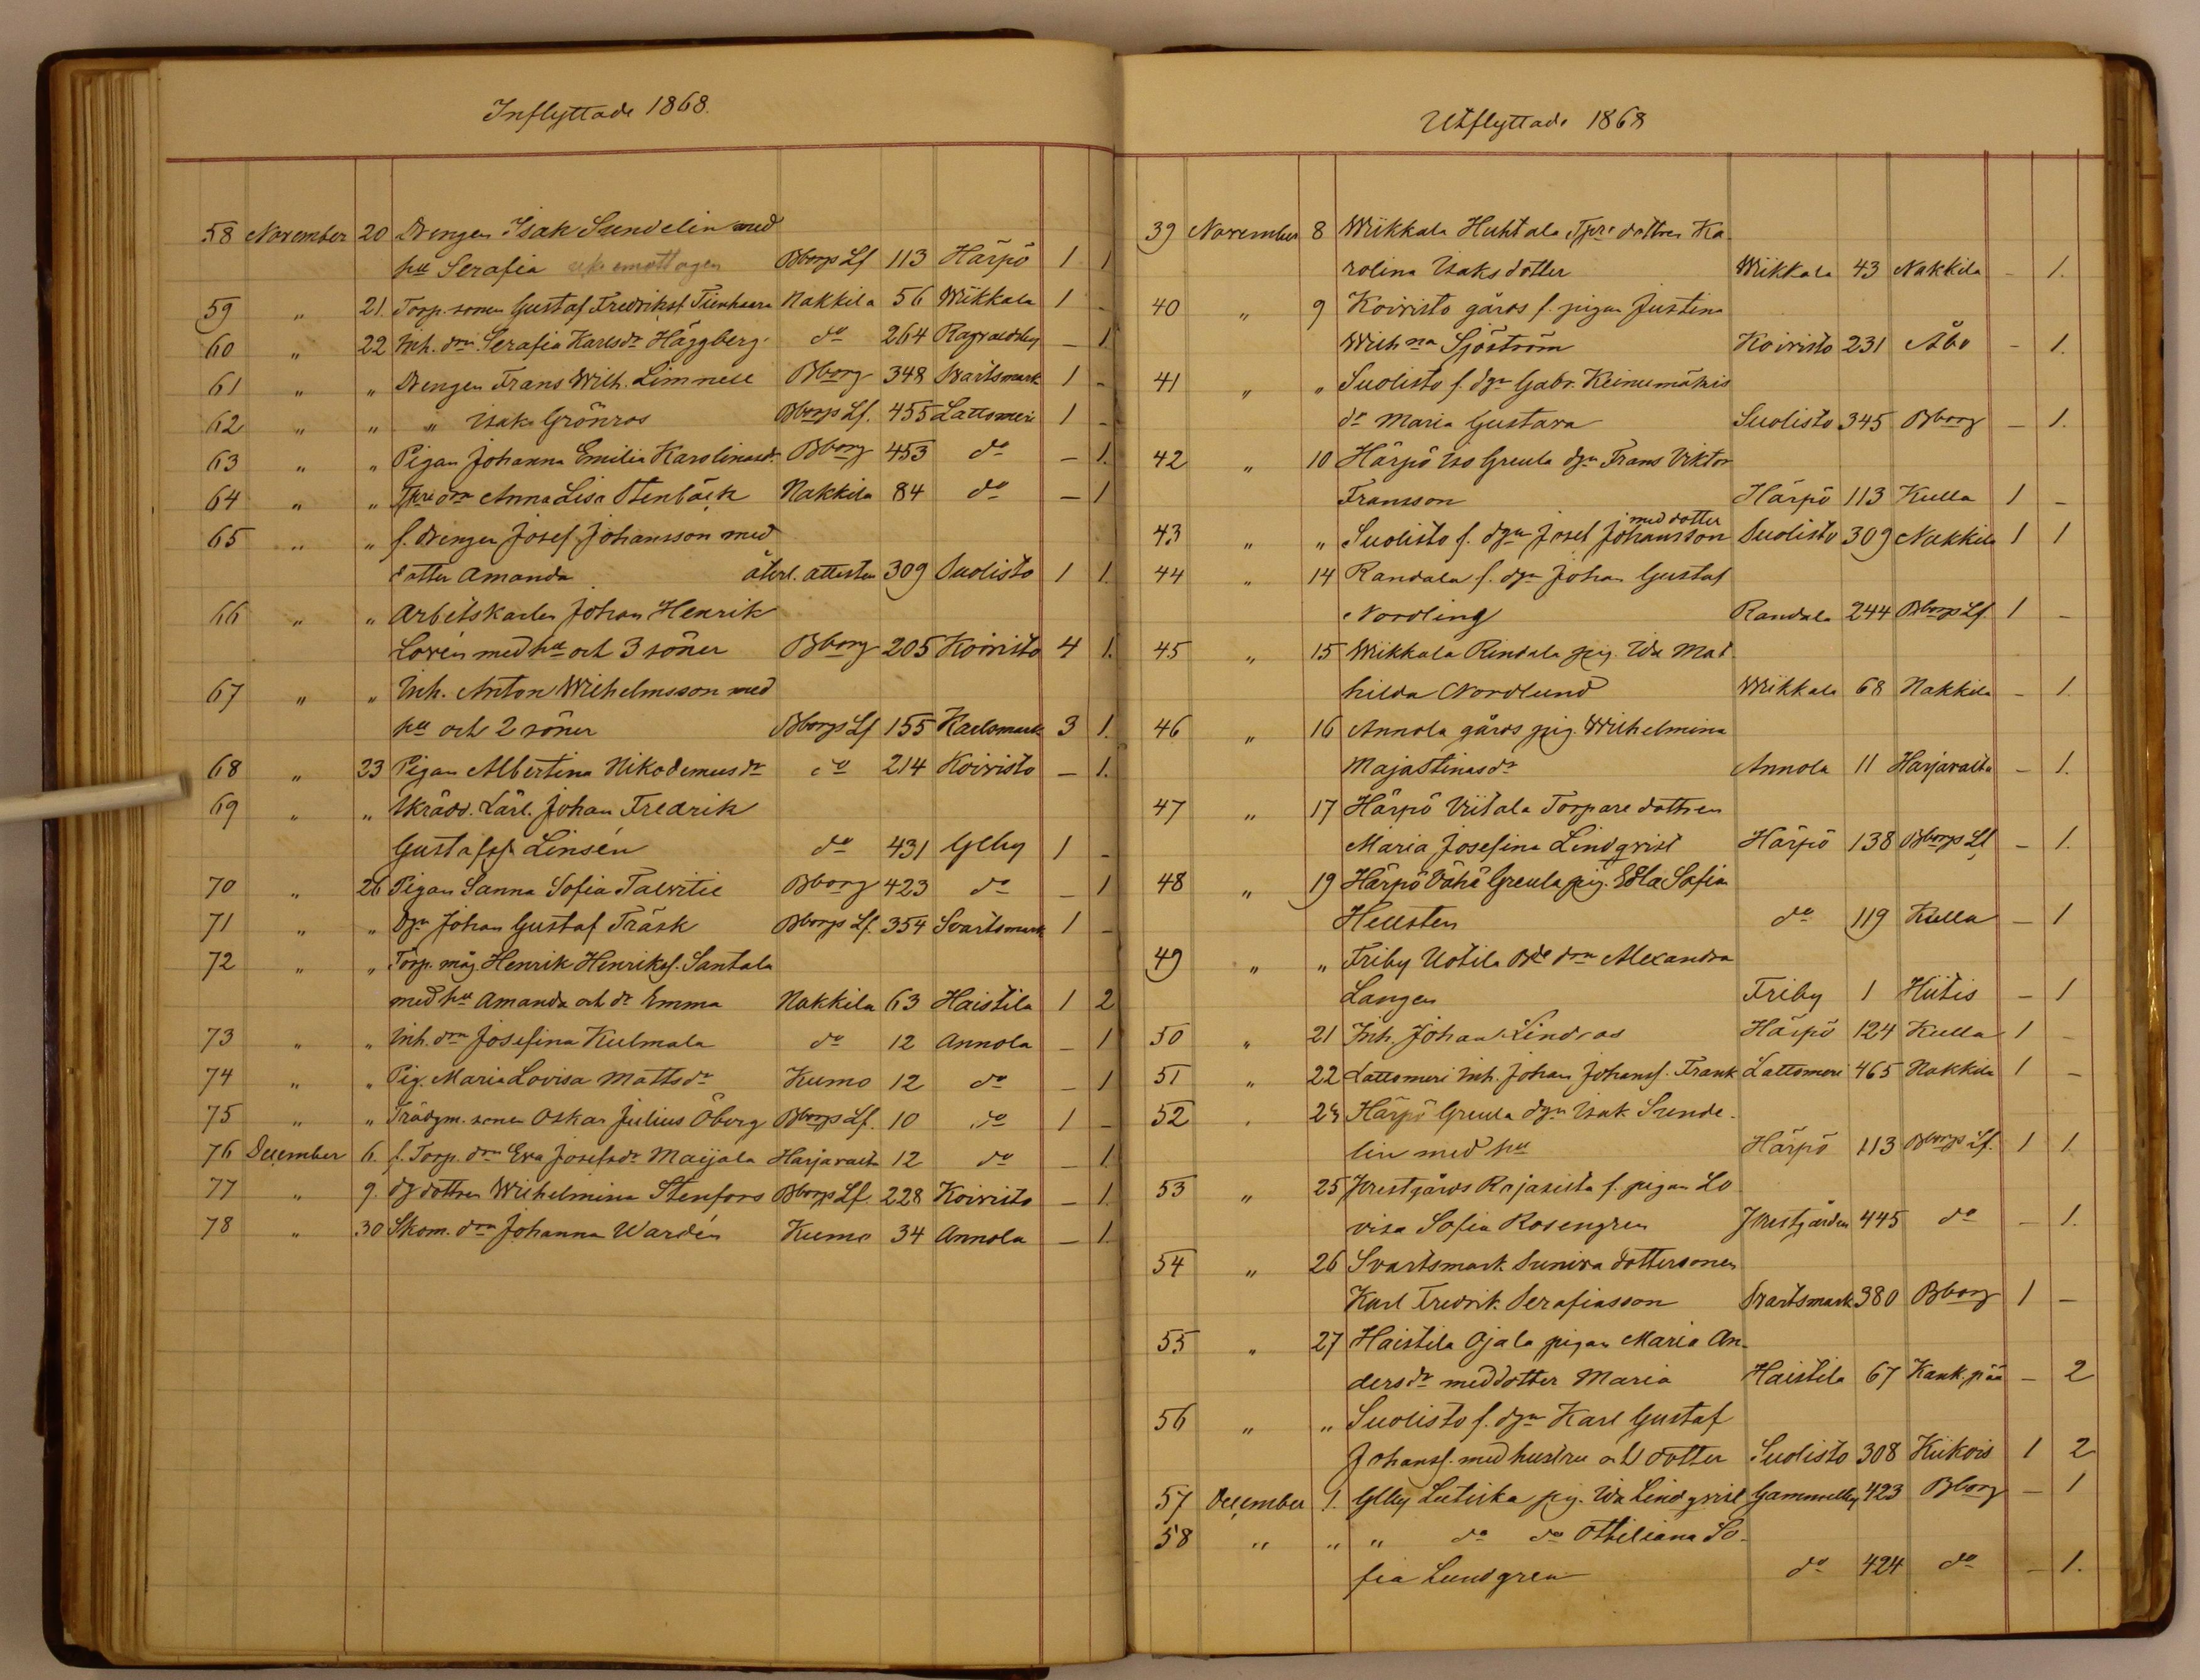 Inflyttade 1868.
58 November 20 Drengen Isak Sundelin med
hu Serafia emottagen Bborgs Lf 113 Härpö 1 1
59 " 21. Torp. sonen Gustaf Fredrikss. Tienhaara Nakkila 56 Wikkala 1 -
60 " 22 Inh. drn Serafia Karlsdr Häggberg. do 264 Ragvaldsby - 1
61 " " Drengen Frans Wilh. Limnell Bborg 348 Svartsmark 1 -
62 " " " Isak Grönros Bborgs Lf. 455 Lattomeri 1 -
63 " " Pigan Johanna Emilia Karolinasdr Bborg 453 do - 1.
64 " " Tpre drn Anna Lisa Stenbäck Nakkila 84 do - 1
65 " " f. Drengen Josef Johansson med
dotter Amanda återl. attesten 309 Suolisto 1 1.
66 " " Arbetskarlen Johan Henrik
Lovén med hu och 3 söner Bborg 205 Koivisto 4 1.
67 " " Inh. Anton Wilhelmsson med
hu och 2 söner Bborgs Lf 155 Karlsmark 3 1.
68 " 23 Pigan Albertina Nikodemusdr do 214 Koivisto - 1.
69 " " Skrädd. Lärl. Johan Fredrik
Gustafss. Linsén do 431 Glby 1 -
70 " 26 Pigan Sanna Sofia Talvitie Bborg 423 do - 1
71 " " Dgn Johan Gustaf Träsk Bborgs Lf. 354 Svartsmark 1 -
72 " " Torp. måg Henrik Henrikss. Santala
med hu Amanda och dr Emma Nakkila 63 Haistila 1 2
73 " " Inh. drn Josefina Kulmala do 12 Annola - 1
74 " " Pig. Maria Lovisa Mattsdr Kumo 12 do - 1
75 " " Trädgm. sonen Oskar Julius Öberg Bborgs Lf. 10 do 1 -
76 December 6. f. Torp. drn Eva Josefsdr Maijala Harjavalta 12 do - 1.
77 " 9. dg dottren Wilhelmina Stenfors Bborgs Lf. 228 Koivisto - 1.
78 " 30 Skom. drn Johanna Wardén Kumo 34 Annola - 1.
Utflyttade 1868
39 November 8 Wiikkala Huhtala Tpre dottren Ka-
rolina Isaksdotter Wiikkala 43 Nakkila - 1.
40 " 9 Koivisto gårds f. pigan Justina
Wilhna Sjöström Koivisto 231 Åbo - 1.
41 " " Suolisto f. dgn Gabr. Keinumäkis
dr Maria Gustava Suolisto 345 Bborg - 1.
42 " 10 Härpö Iso Greula dgn Frans Viktor
Fransson Härpö 113 Kulla 1 -
med dotter
43 " " Suolisto f. dgn Josef Johansson Suolisto 309 Nakkila 1 1
44 " 14 Randala f. dgn Johan Gustaf
Nordling Randala 244 Bborgs Lf. 1 -
45 " 15 Wiikkala Rindala pig. Ida Mat
hilda Nordlund Wiikkala 68 Nakkila - 1.
46 " 16 Annola gårds pig. Wilhelmina
Majastinasdr Annola 11 Harjavalta - 1.
47 " 17 Härpö Viitala Torpare dottren
Maria Josefina Lindqvist Härpö 138 Bborgs Lf - 1.
48 " 19 Härpö Vähä Greula pig. Edla Sofia
Hellsten do 119 Kulla - 1
49 " " Friby Uotila Bde drn Alexandra
Langen Friby 1 Hiitis - 1
50 " 21 Inh. Johan Lindroos Härpö 124 Kulla 1 -
51 " 22 Lattomeri Inh. Johan Johanss. Frank Lattomeri 465 Nakkila 1 -
52 " 24 Härpö Greula dgn Isak Sunde-
lin med hu Härpö 113 Bborgs Lf. 1 1
53 " 25 Prestgårds Rajasilta f. pigan Lo
visa Sofia Rosengren Prestgården 445 do - 1.
54 " 26 Svartsmark Suniva dottersonen
Karl Fredrik Serafiasson Svartsmark 380 Bborg 1 -
55 " 27 Haistila Ojala pigan Maria An-
dersdr med dotter Maria Haistila 67 Kank.pää - 2
56 " " Suolisto f. dgn Karl Gustaf
Johanss. med hustru och dotter Suolisto 308 Kiikois 1 2
57 December 1. Glby Lutiska pig. Ida Lindqvist Gammelby 423 Bborg - 1
58 " " " do do Otheliana So-
fia Lundgren do 424 do - 1.